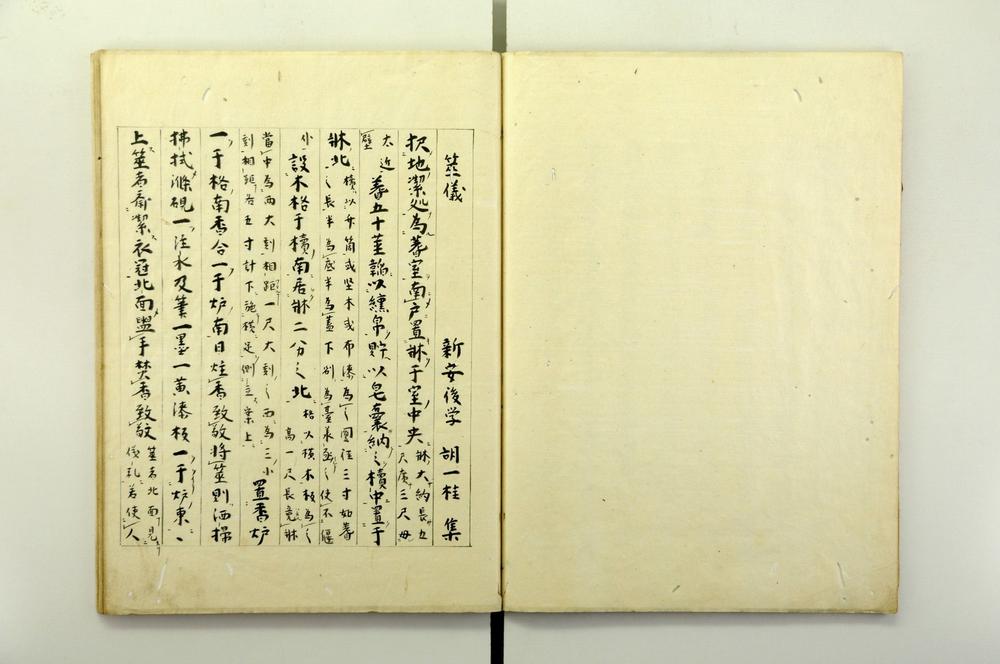 筮儀
新安後学 胡一桂 集
択地潔処為蓍室南戸置牀于室中央
牀大約長五
尺広三尺毋
太近
壁
蓍五十茎韜以纁帛貯以皂囊納之櫝中置于
牀北
櫝以竹筒或堅木或布漆為之圓徑三寸如蓍
之長半為底半為蓋下別為臺承函之使不偃
仆
設木格于櫝南居牀二分之北
格以横木板為之
高一尺長竟牀
當中為兩大刻相距一尺大刻之西為三小
刻相距各五寸計下施横足側立案上
置香炉
一于格南香合一于炉南日炷香致敬将筮則洒掃
拂拭滌硯一注水及筆一墨一黄漆板一于炉東、
上筮者斎潔衣冠北面盥手焚香致敬
筮者北面見
儀礼若使人